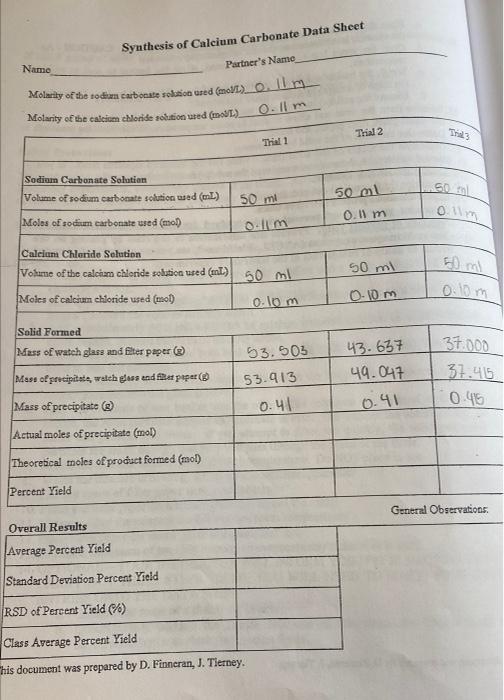 Synthesis of Calcium Carbonate Data Sheet
Name Partner's Name
Molarity of the sodium carbonate solution used (mol/L) 0.11m
Molarity of the calcium chloride solution used (mol/L) 0.11m
Trial 1 Trial 2 Trial 3
Sodium Carbonate Solution
Volume of sodium carbonate solution used (mL) 50 ml 50 ml 50 ml
Moles of sodium carbonate used (mol) 0.11m 0.11 m 0.11m
Calcium Chloride Solution
Volume of the calcium chloride solution used (mL) 50 ml 50 ml 50 ml
Moles of calcium chloride used (mol) 0.10 m 0.10 m 0.10 m
Solid Formed
Mass of watch glass and filter paper (g) 53.503 43.637 37.000
Mass of precipitate, watch glass and filter paper (g) 53.913 49.047 37.415
Mass of precipitate (g) 0.41 0.41 0.415
Actual moles of precipitate (mol)
Theoretical moles of product formed (mol)
Percent Yield
General Observations:
Overall Results
Average Percent Yield
Standard Deviation Percent Yield
RSD of Percent Yield (%)
Class Average Percent Yield
his document was prepared by D. Finneran, J. Tierney.